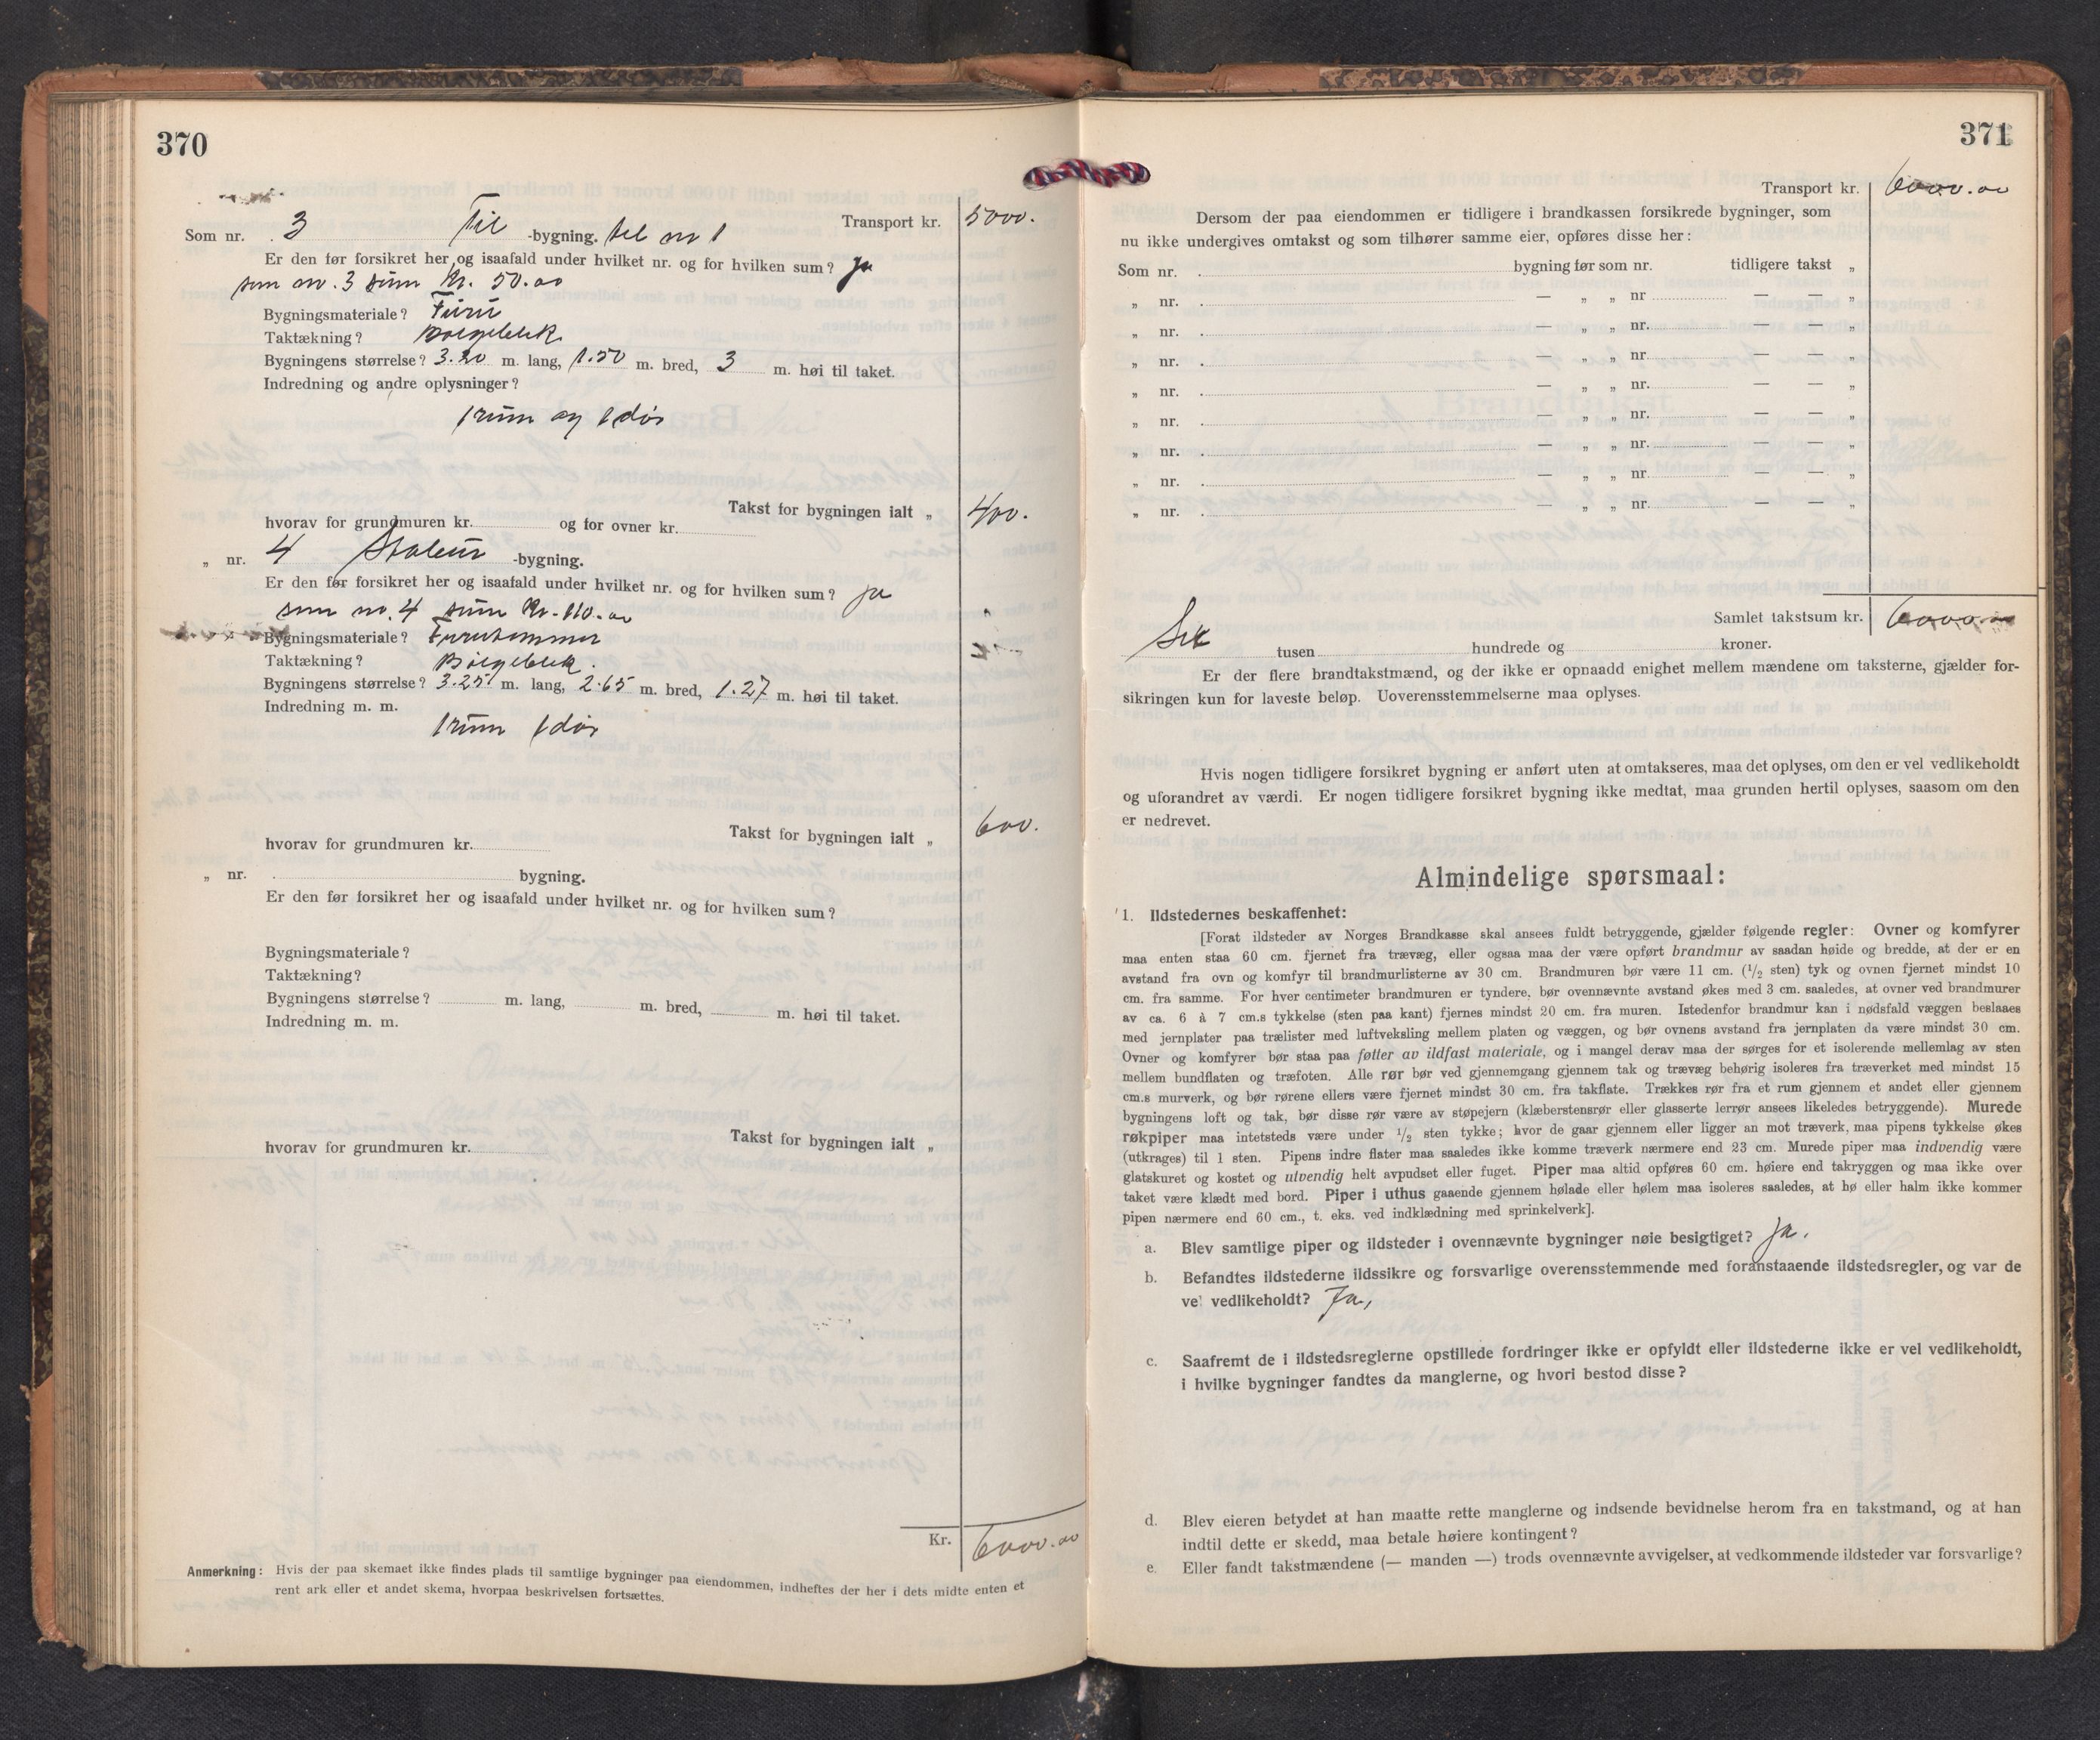 370
Transport kr. 5000.
Som nr. 3 Til -bygning. til nr 1
Er den før forsikret her og isaafald under hvilket nr. og for hvilken sum? Ja
som nr. 3 sum Kr. 50.00
Bygningsmateriale? Furu
Taktækning? Bølgeblik
Bygningens størrelse? 3.20 m. lang, 1.50 m. bred, 3 m. høi til taket.
Indredning og andre oplysninger?
1 rum og 1 dør
Takst for bygningen ialt „ 400.
hvorav for grundmuren kr. og for ovner kr.
„ nr. 4 Stabur -bygning.
Er den før forsikret her og isaafald under hvilket nr. og for hvilken sum? Ja
som nr. 4 sum Kr. 110.00
Bygningsmateriale? Furutømmer
Taktækning? Bølgeblik.
Bygningens størrelse? 3.25 m. lang, 2.65 m. bred, 1.27 m. høi til taket.
Indredning m. m.
1 rum 1 dør
Takst for bygningen ialt „ 600.
hvorav for grundmuren kr.
„ nr. bygning.
Er den før forsikret her og isaafald under hvilket nr. og for hvilken sum?
Bygningsmateriale?
Taktækning?
Bygningens størrelse? m. lang, m. bred, m. høi til taket.
Indredning m. m.
Takst for bygningen ialt „
hvorav for grundmuren kr.
Kr. 6000.00
Anmerkning: Hvis der paa skemaet ikke findes plads til samtlige bygninger paa eiendommen, indheftes der her i dets midte enten et
rent ark eller et andet skema, hvorpaa beskrivelsen fortsættes.
371
Transport kr. 6000.00
Dersom der paa eiendommen er tidligere i brandkassen forsikrede bygninger, som
nu ikke undergives omtakst og som tilhører samme eier, opføres disse her:
Som nr. bygning før som nr. tidligere takst „
„ nr. — „ „ nr — — „
„ nr. — „ „ nr. — — „
„ nr. — „ „ nr. — — „
„ nr. — „ „ nr. — — „
„ nr. — „ „ nr. — — „
„ nr. — „ „ nr. — — „
„ nr. — „ „ nr. — — „
„ nr. — „ „ nr. — — „
Samlet takstsum kr. 6000.00
Sex tusen hundrede og kroner.
Er der flere brandtakstmænd, og der ikke er opnaadd enighet mellem mændene om taksterne, gjælder for-
sikringen kun for laveste beløp. Uoverensstemmelserne maa oplyses.
Hvis nogen tidligere forsikret bygning er anført uten at omtakseres, maa det oplyses, om den er vel vedlikeholdt
og uforandret av værdi. Er nogen tidligere forsikret bygning ikke medtat, maa grunden hertil oplyses, saasom om den
er nedrevet.
Almindelige spørsmaal:
1. Ildstedernes beskaffenhet:
[Forat ildsteder av Norges Brandkasse skal ansees fuldt betryggende, gjælder følgende regler: Ovner og komfyrer
maa enten staa 60 cm. fjernet fra trævæg, eller ogsaa maa der være opført brandmur av saadan høide og bredde, at der er en
avstand fra ovn og komfyr til brandmurlisterne av 30 cm. Brandmuren bør være 11 cm. (1/2 sten) tyk og ovnen fjernet mindst 10
cm. fra samme. For hver centimeter brandmuren er tyndere, bør ovennævnte avstand økes med 3 cm. saaledes, at ovner ved brandmurer
av ca. 6 à 7 cm.s tykkelse (sten paa kant) fjernes mindst 20 cm. fra muren. Istedenfor brandmur kan i nødsfald væggen beslaaes
med jernplater paa trælister med luftveksling mellem platen og væggen, og bør ovnens avstand fra jernplaten da være mindst 30 cm.
Ovner og komfyrer bør staa paa føtter av ildfast materiale, og i mangel derav maa der sørges for et isolerende mellemlag av sten
mellem bundflaten og træfoten. Alle rør bør ved gjennemgang gjennem tak og trævæg behørig isoleres fra træverket med mindst 15
cm.s murverk, og bør rørene ellers være fjernet mindst 30 cm. fra takflate. Trækkes rør fra et rum gjennem et andet eller gjennem
bygningens loft og tak, bør disse rør være av støpejern (klæberstensrør eller glasserte lerrør ansees likeledes betryggende). Murede
røkpiper maa intetsteds være under 1/2 sten tykke; hvor de gaar gjennem eller ligger an mot træverk, maa pipens tykkelse økes
(utkrages) til 1 sten. Pipens indre flater maa saaledes ikke komme træverk nærmere end 23 cm. Murede piper maa indvendig være
glatskuret og kostet og utvendig helt avpudset eller fuget. Piper maa altid opføres 60 cm. høiere end takryggen og maa ikke over
taket være klædt med bord. Piper i uthus gaaende gjennem hølade eller hølem maa isoleres saaledes, at hø eller halm ikke kommer
pipen nærmere end 60 cm., t. eks. ved indklædning med sprinkelverk].
a. Blev samtlige piper og ildsteder i ovennævnte bygninger nøie besigtiget? Ja.
b. Befandtes ildstederne ildssikre og forsvarlige overensstemmende med foranstaaende ildstedsregler, og var de
vel vedlikeholdt? Ja,
c. Saafremt de i ildstedsreglerne opstillede fordringer ikke er opfyldt eller ildstederne ikke er vel vedlikeholdt,
i hvilke bygninger fandtes da manglerne, og hvori bestod disse?
d. Blev eieren betydet at han maatte rette manglerne og indsende bevidnelse herom fra en takstmand, og at han
indtil dette er skedd, maa betale høiere kontingent?
e. Eller fandt takstmændene (— manden —) trods ovennævnte avvigelser, at vedkommende ildsteder var forsvarlige?